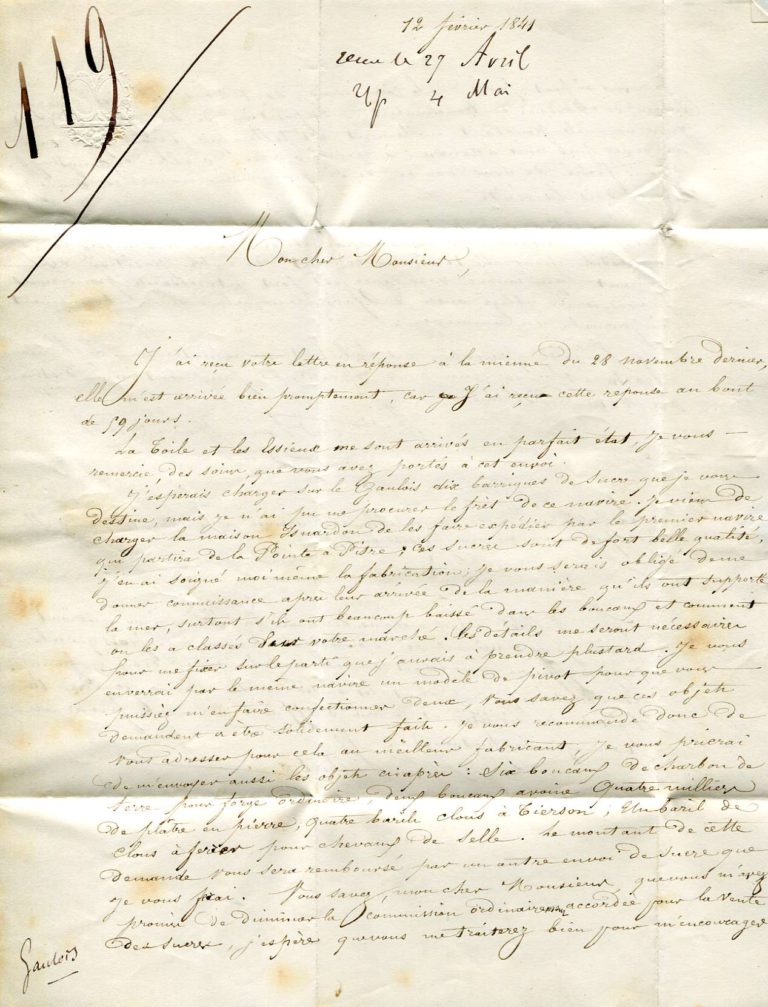 119
12 février 1841
recu le 29 Avril
Rp 4 Mai
Mon cher Monsieur,
J'ai reçu votre lettre en réponse à la mienne du 28 novembre dernier,
elle m'est arrivée bien promptement, car J'ai reçu cette réponse au bout
de 59 jours.
La Toile et les Essieux me sont arrivés en parfait état, Je vous
remercie des soins que vous avez portés à cet envoi.
J'espérais charger sur le Gaulois dix barriques de Sucre que je vous
destine, mais je n'ai pu me procurer le frêt de ce navire. Je viens de
charger la maison Isnardon de les faire expédier par le premier navire
qui partira de la Pointe à Pitre, ces sucres sont de fort belle qualité,
j'en ai soigné moi même la fabrication; Je vous serais obligé de me
donner connaissance après leur arrivée de la manière qu'ils ont supporté
la mer, surtout s'ils ont beaucoup baissé dans les boucaux et comment
on les a classés votre marché. les détails me seront nécessaires
pour me fixer sur le parti que j'aurais à prendre plustard. Je vous
enverrai par le même navire un modèle de pivot pour que vous
puissiez m'en faire confectionner deux, Vous savez que ces objets
demandent à être solidement faits. Je vous recommande donc de
vous adresser pour cela au meilleur fabricant, Je vous prierai
de m'envoyer aussi les objets ci après: Six boucaux de charbon de
terre pour forge ordinaire, deux boucaux avoine Quatre milliers
de plâtre en pierre, quatre barils clous à Tierson, Un baril de
clous à ferrer pour chevaux de selle. Le montant de cette
demande vous sera remboursé par un autre envoi de sucre que
Je vous ferai. Vous savez, mon cher Monsieur, que vous m'avez
promis de diminuer la commission ordinairement accordée pour la vente
des sucres, j'espère que vous me traiterez bien pour m'encourager
Gaulois